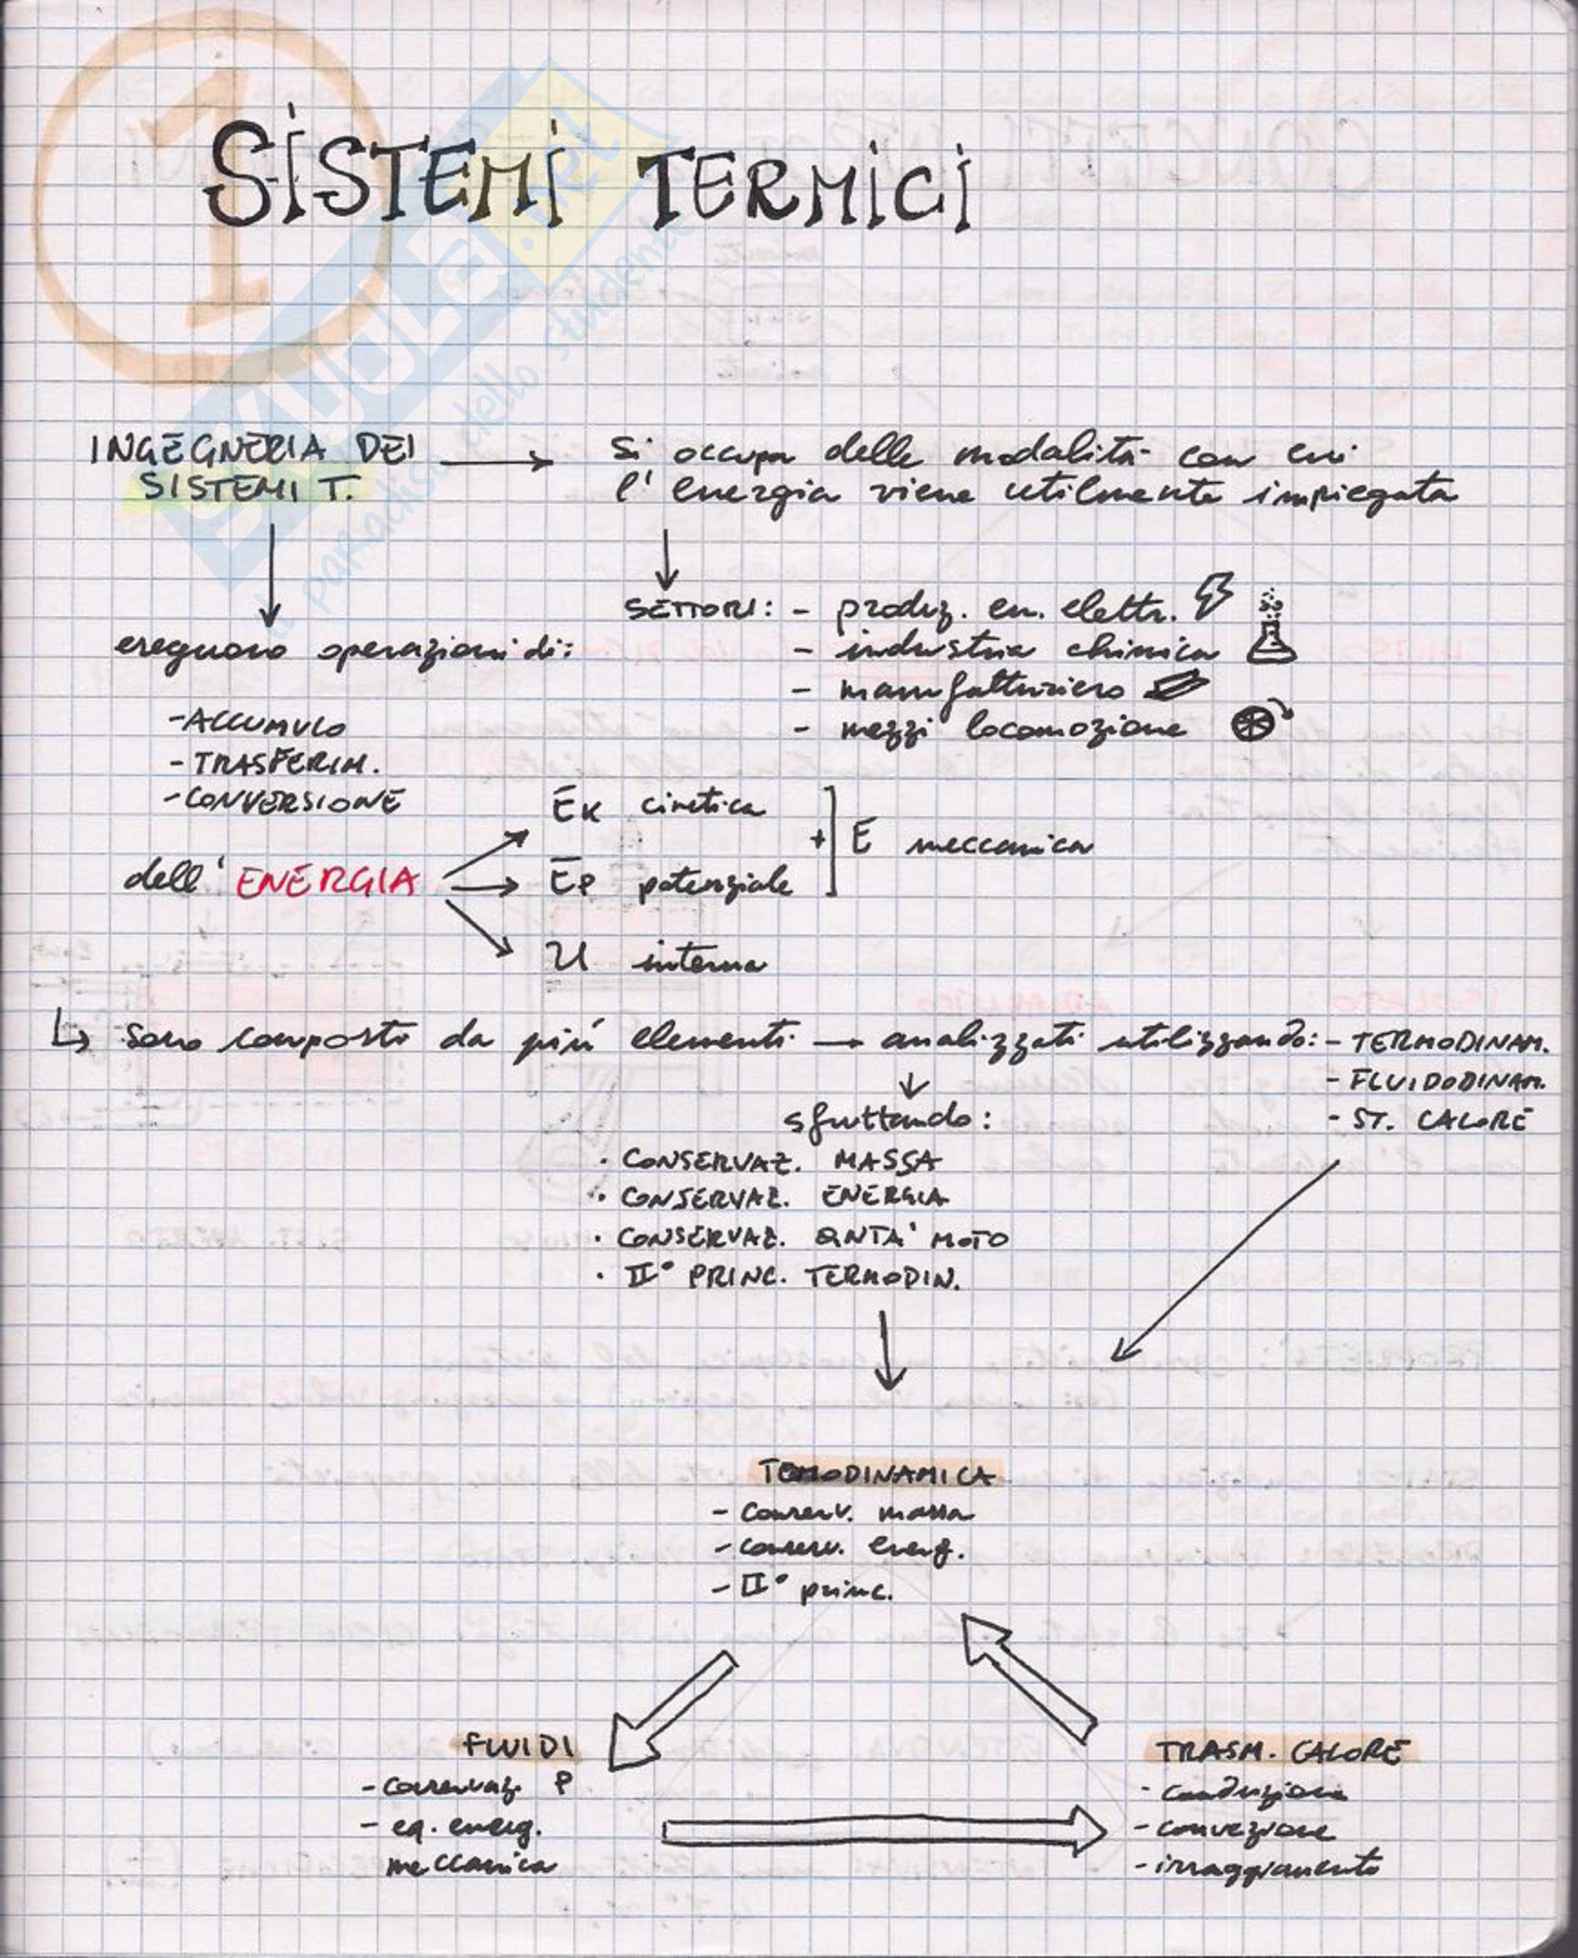 1
SISTEMI TERMICI
SKUOLA.net
il paradiso dello studente
INGEGNERIA DEI
SISTEMI T.
si occupa delle modalità con cui
l'energia viene utilmente impiegata
SETTORI: - produz. en. elettr.
- industria chimica
- manufatturiero
- mezzi locomozione
eseguono operazioni di:
- ACCUMULO
- TRASFERIM.
- CONVERSIONE
dell' ENERGIA
EK cinetica
EP potenziale
+ E meccanica
U interna
sono composti da più elementi → analizzati utilizzando: - TERMODINAM.
- FLUIDODINAM.
- ST. CALORE
sfruttando:
· CONSERVAZ. MASSA
· CONSERVAZ. ENERGIA
· CONSERVAZ. QNTA' MOTO
· II° PRINC. TERMODIN.
- conserv. massa
- conserv. energ.
- II° princ.
FLUIDI
- conservaz. P
- eq. energ.
meccanica
TRASM. CALORE
- conduzione
- convezione
- irraggiamento